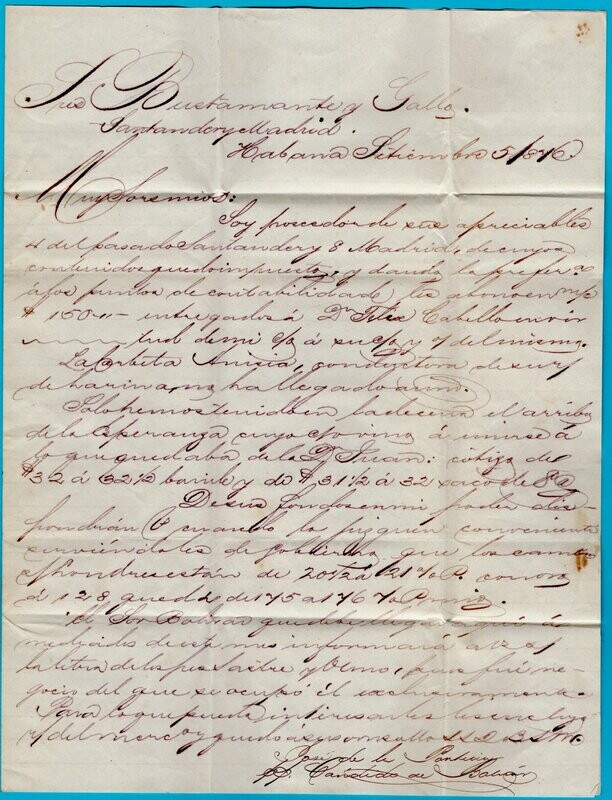 Sres Bustamante y Gallo.
Santander y Madrid.
Habana Setiembre 5/876
Muy Sores mios:
Soy poseedor de sus apreciables
4 del pasado Santander y 8 Madrid, de cuyos
contenidos quedo impuesto, y dando la prefer
á los puntos de contabilidad les abono en m/c
$ 150 - entregados á Dn Felix Cabello en vir
tud de mi c/o á su c/ y / del mismo.
La Corbeta Anisia, conductora de su s/
de harina, no ha llegado aun.
Solo hemos tenido en la decena el arribo
de la Esperanza cuyo c/ vino á unirse á
lo que quedaba de la Dn Juan: cotizo de
$ 32 á 32½ barile y de $ 31½ á 32 saco de 8@
De sus fondos en mi poder dis
pondrán V cuando lo juzguen conveniente
sirviéndoles de gobierno que los cambios
s/ Londres están de 20½ á 21 % P. con oro
á 128 queda de 175 a 176 % P m/c.
El Sor Bolivar que debe llegar á
mediados de este mes informará a V
la letra de los pesos, pues fué ne-
gocio del que se ocupó él exclusivamente
Para lo que pueda interesarles les incluyo
y del merc y quedo á sus S.S. Q B S M.
José de la
P. Candido de